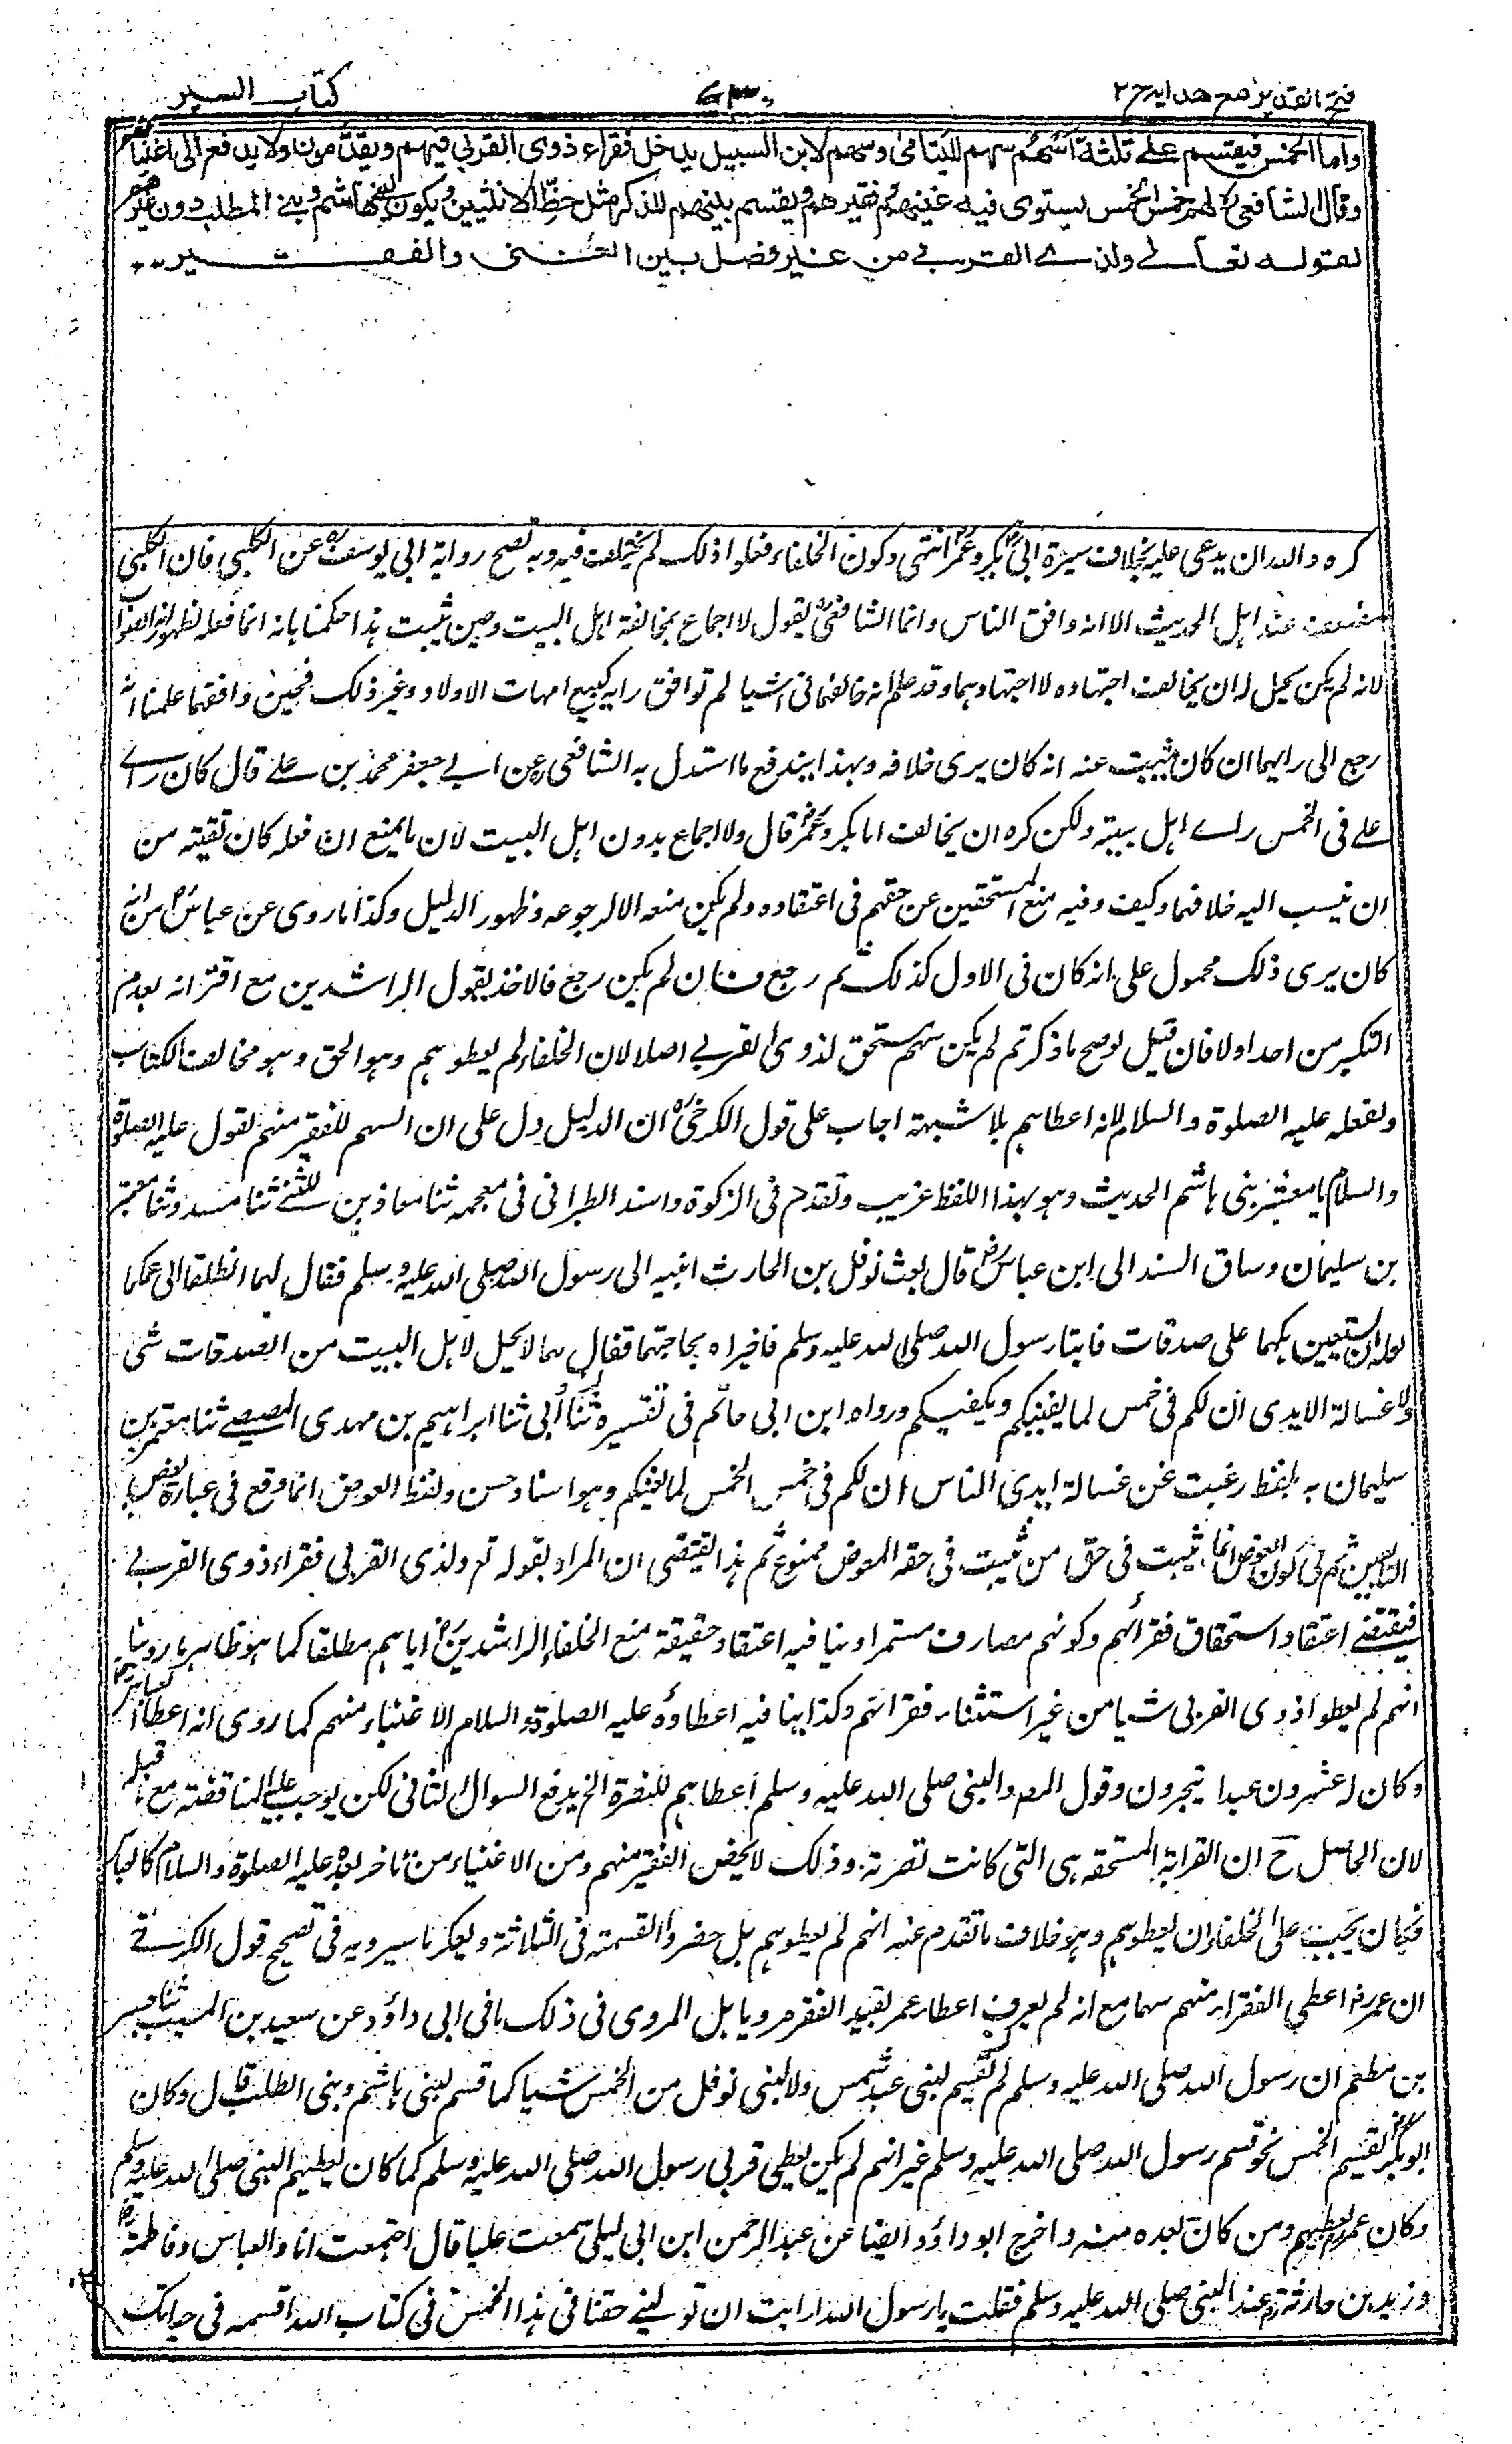 فتح القدير مع هدايه ج ٢
٧٣٠
كتاب السير
واما الخمس فيقسم على ثلثة اسهم سهم لليتامى وسهم لابن السبيل يدخل فقراء ذوى القربي فيهم ويقدمون ولا يدفع الى اغنيائهم
وقال الشافعى رح لهم خمس الخمس يستوى فيه غنيهم وفقيرهم ويقسم بينهم للذكر مثل حظ الانثيين ويكون لبنى هاشم وبنے المطلب دون غيرهم
لقوله تعالى ولذے القربے من غير فصل بين الغنى والفقير
كره والله ان يدعى عليه بخلاف سيرة ابى بكر وعمر انتهى وكون الخلفاء فعلوا ذلك لم يختلف فيه وبه تصح رواية ابى يوسف عن الكلبى فان الكلبى
مضعف عند اهل الحديث الا انه وافق الناس وانما الشافعى يقول لا اجماع بمخالفة اهل البيت وحين ثبت هذا حكمنا بانه انما فعله لظهور انه الصواب
لانه لم يكن يحل له ان يخالف اجتهاده لاجتهادهما وقد علم انه خالفهما فى اشيا لم توافق رايه كبيع امهات الاولاد وغير ذلك فحين وافقهما علمنا انه
رجع الى رايهما ان كان ثبت عنه انه كان يرى خلافه وبهذا يندفع ما استدل به الشافعى رح عن ابے جعفر محمد بن علے قال كان راے
علے فى الخمس راے اهل بيته ولكن كره ان يخالف ابا بكر وعمر قال ولا اجماع بدون اهل البيت لان ما يمنع ان فعله كان تقية من
ان ينسب اليه خلافهما وكيف وفيه منع المستحقين عن حقهم فى اعتقاده ولم يكن منعه الا لرجوعه وظهور الدليل وكذا ما روى عن عباس من انه
كان يرى ذلك محمول على انه كان فى الاول كذلك ثم رجع وان لم يكن رجع فالاخذ بقول الراشدين مع اقترانه بعدم
النكير من احد اولا فان قيل لو صح ما ذكرتم لم يكن سهم مستحق لذوى القربے اصلا لان الخلفاء لم يعطوهم وهو الحق وهو مخالف الكتاب
ولفعله عليه الصلوة والسلام لانه اعطاهم بلا شبهة اجاب على قول الكرخى ان الدليل دل على ان السهم للفقير منهم لقول عليه الصلوة
والسلام يا معشر بنى هاشم الحديث وهو بهذا اللفظ غريب وتقدم فى الزكوة واسند الطبرانى فى معجمه ثنا معاذ بن المثنے ثنا مسدد ثنا معتمر
بن سليمان وساق السند الى ابن عباس رض قال بعث نوفل بن الحارث ابنيه الى رسول الله صلى الله عليه وسلم فقال لهما انطلقا الى عمكما
لعله ان يستعين بكما على صدقات فاتيا رسول الله صلى الله عليه وسلم فاخبراه بحاجتهما فقال لهما لا يحل لاهل البيت من الصدقات شى
ولا غسالة الايدى ان لكم فى خمس لما يغنيكم ويكفيكم ورواه ابن ابى حاتم فى تفسيره ثنا ابى ثنا ابراهيم بن مهدى المصيصے ثنا معتمر بن
سليمان به بلفظ رغبت عن غسالة ايدى الناس ان لكم فى خمس الخمس لما يغنيكم وهو اسناد حسن ولفظ العوض انما وقع فى عبارة بعض
التابعين ثم فى كون العوض انما يثبت فى حق من يثبت فى حقه المعوض ممنوع ثم هذا يقتضى ان المراد بقوله تع ولذى القربى فقراء ذوى القربے
فيقتضے اعتقاد استحقاق فقرائهم وكونهم مصارف مستمرا وينافيه اعتقاد حقيقة منع الخلفاء الراشدين اياهم مطلقا كما هو ظاهر ما روينا
انهم لم يعطوا ذوى القربى شيا من غير استثناء فقرائهم وكذا ينافيه اعطاؤه عليه الصلوة والسلام الاغنياء منهم كما روى انه اعطى العباس
وكان له عشرون عبدا يتجرون وقول المص والنبى صلى الله عليه وسلم اعطاهم للنصرة الخ يدفع السوال الثانى لكن يوجب عليه المناقضة مع ما قبله
لان الحاصل ح ان القرابة المستحقه هى التى كانت نصرته وذلك لا يخص الفقير منهم ومن الاغنياء من تاخر بعده عليه الصلوة والسلام كالعباس
فكان يجب على الخلفاء ان يعطوهم وهو خلاف ما تقدم عنه انهم لم يعطوهم بل حضروا القسمة فى الثلاثة ويعكر ما سيرويه فى تصحيح قول الكرخے
ان عمر رض اعطى الفقراء منهم سهما مع انه لم يعرف اعطاء عمر بقيد الفقر مرويا بل المروى فى ذلك ما فى ابى داؤد عن سعيد بن المسيب ثنا جبير
بن مطعم ان رسول الله صلى الله عليه وسلم لم يقسم لبنى عبد شمس ولا لبنى نوفل من الخمس شيا كما قسم لبنى هاشم وبنى المطلب قال وكان
ابوبكر يقسم الخمس نحو قسم رسول الله صلى الله عليه وسلم غير انهم لم يكن يعطى قربى رسول الله صلى الله عليه وسلم كما كان يعطيهم النبى صلى الله عليه وسلم
وكان عمر يعطيهم ومن كان بعده منه واخرج ابو داؤد ايضا عن عبد الرحمن ابن ابى ليلى سمعت عليا قال اجتمعت انا والعباس وفاطمة
وزيد بن حارثة رض عند النبى صلى الله عليه وسلم فقلت يا رسول الله ارايت ان تولينے حقنا فى هذا الخمس فى كتاب الله اقسمه فى حياتك